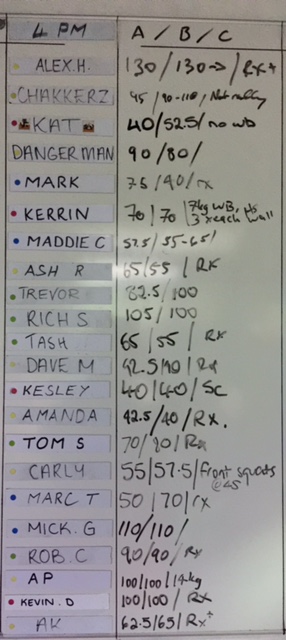 4 PM A / B / C
ALEX.H. 130 / 130 → / RX+
CHAKKERZ 95 / 90-110 /
KAT 40 / 52.5 / no wb
DANGERMAN 90 / 80 /
MARK 75 / 90 / rx
KERRIN 70 / 70 / 7kg WB, Hs
3 x each wall
MADDIE C 57.5 / 55-65 /
ASH R 65 / 55 / RX
TREVOR 82.5 / 100
RICH S 105 / 100
TASH 65 / 55 / RX
DAVE M 92.5 / 90 / Rx
KESLEY 40 / 40 / SC
AMANDA 42.5 / 40 / Rx.
TOM S 70 / 80 / Rx
CARLY 55 / 57.5 / front squats
@45
MARC T 50 / 70 / rx
MICK.G 110 / 110 /
ROB.C 90 / 90 / Rx
AP 100 / 100 / 14kg
KEVIN.D 100 / 100 / Rx
AK 62.5 / 65 / Rx+